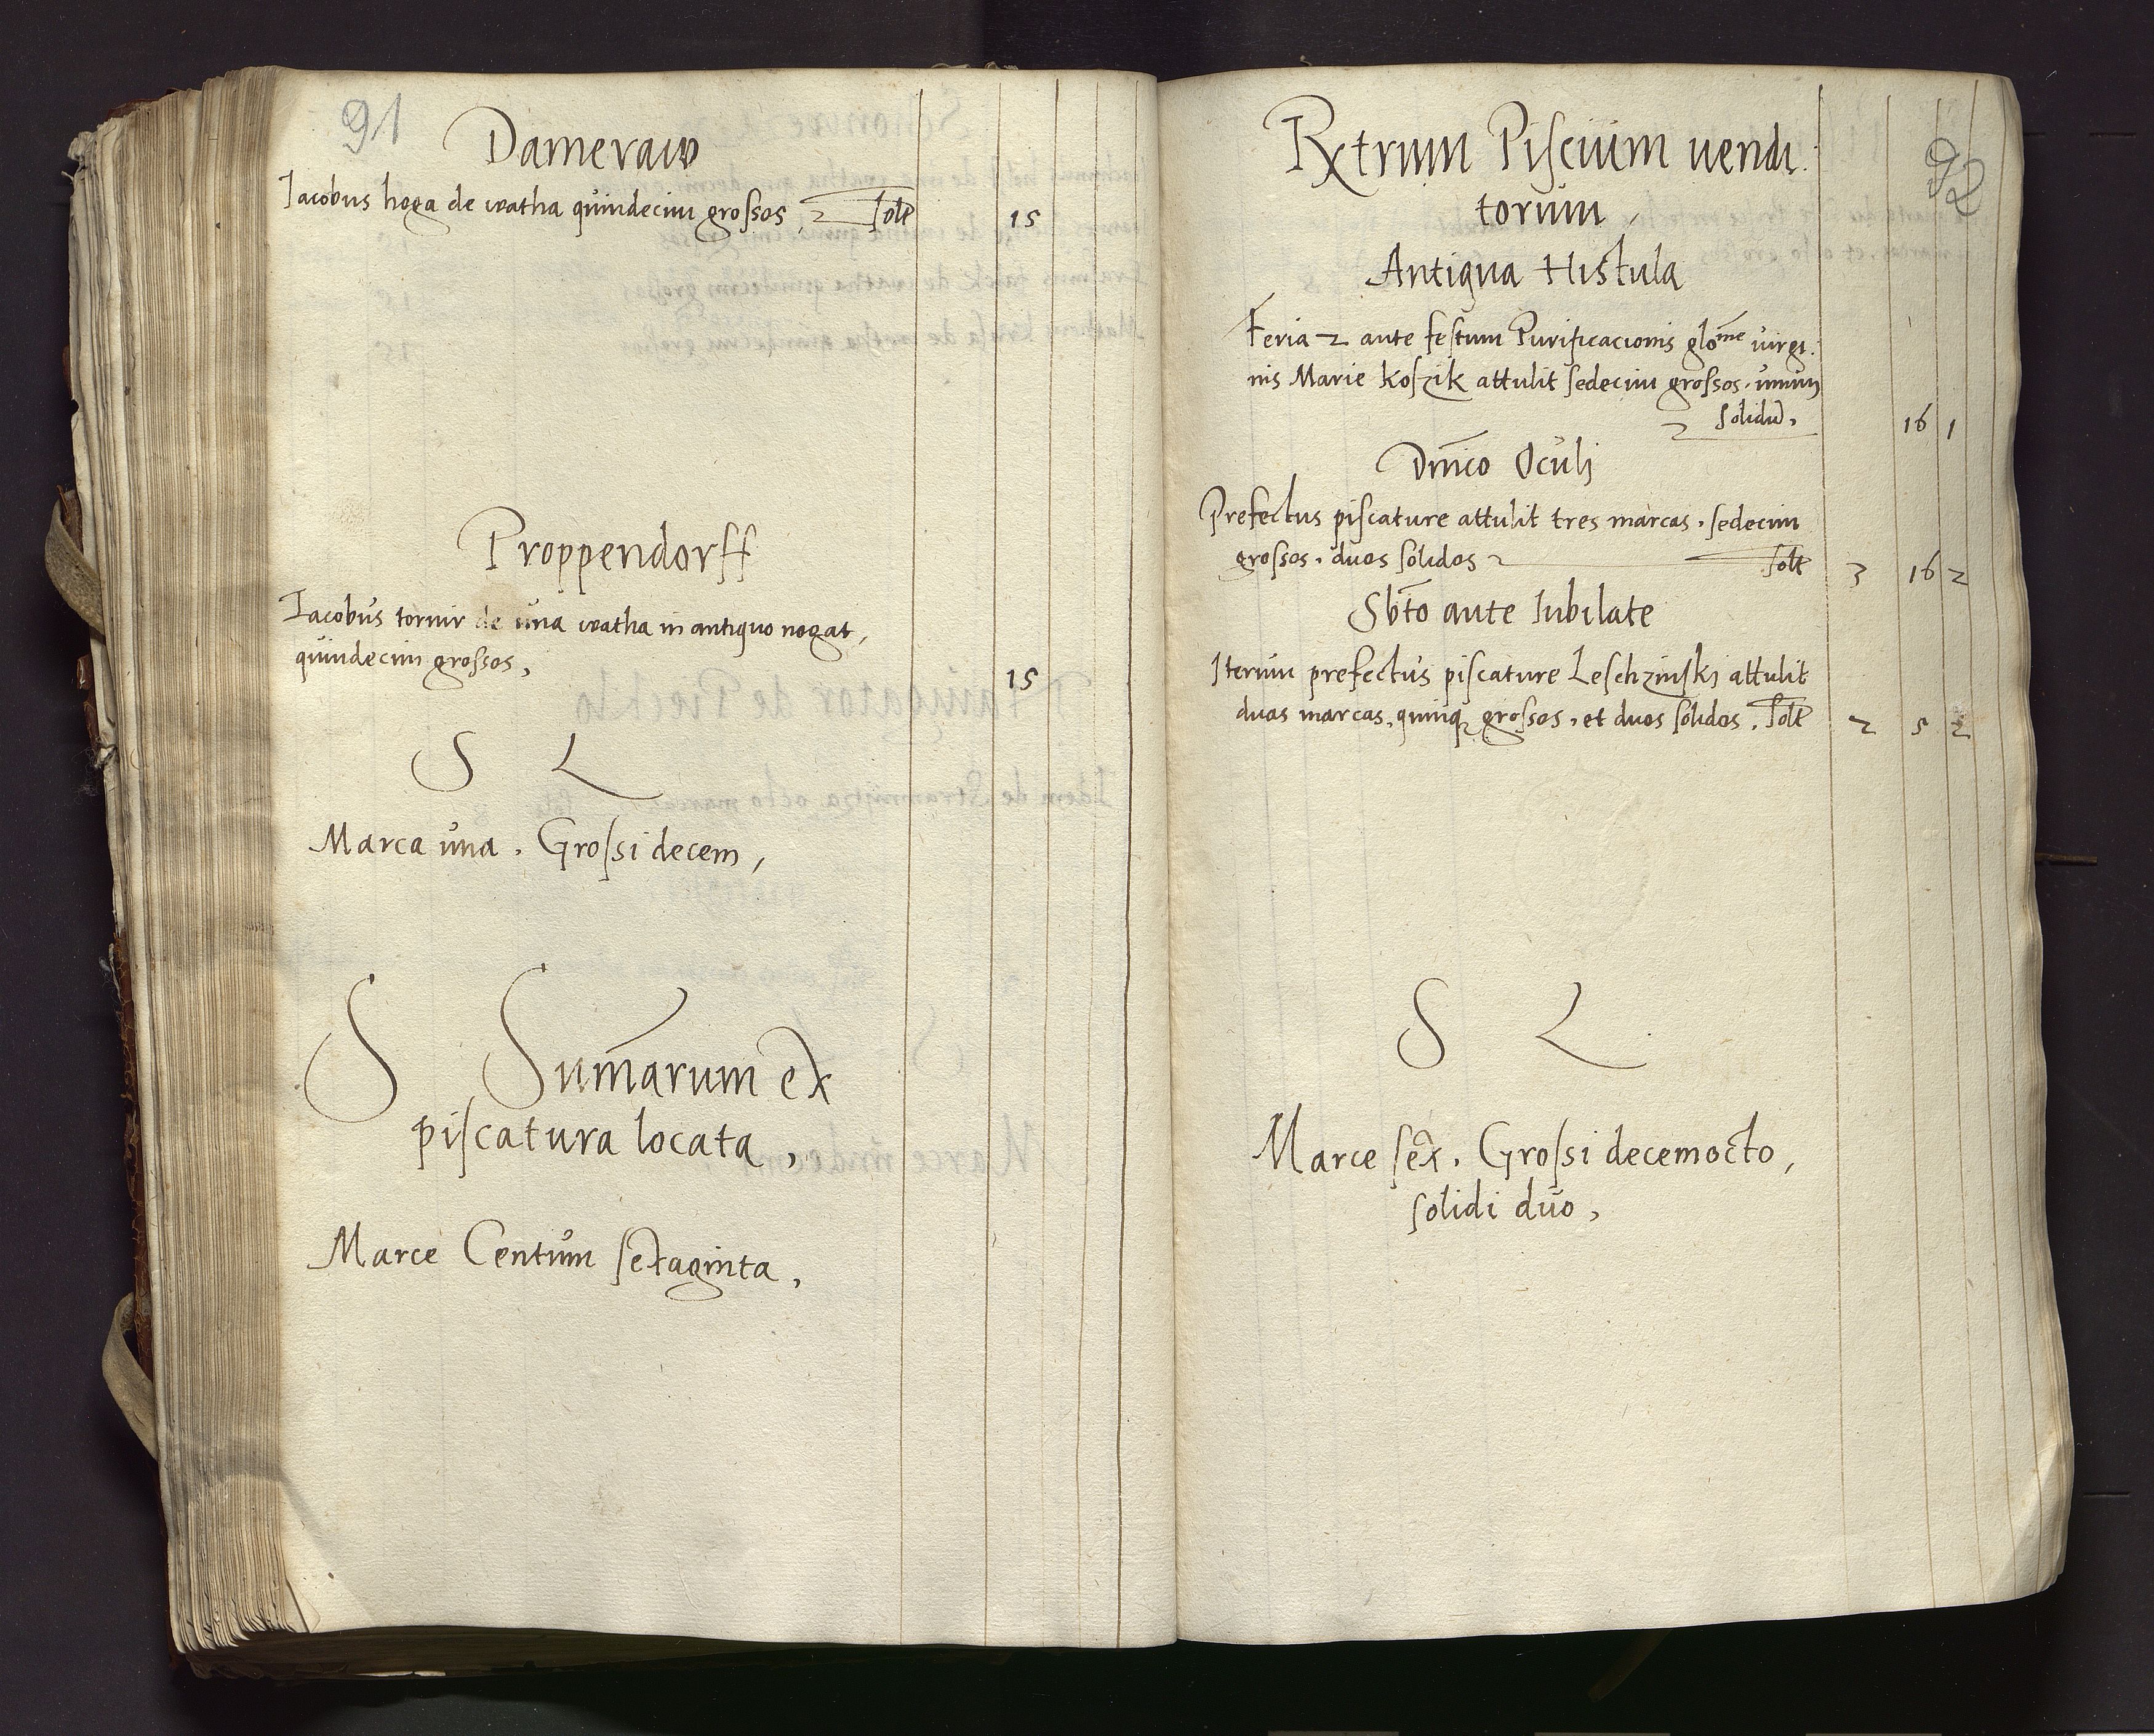 91
Dameraw
Iacobus hoga de watha quindecim grossos, solt 15
Proppendorff
Iacobus tornir de una watha in antiquo nogat,
quindecim grossos, 15
S L
Marca una. Grossi decem,
S Sum̄arum ex
piscatura locata,
Marce Centum sexaginta,
92
Rxtrum Piscium vendi
torum,
Antiqua Histula
Feria 2 ante festum Purificacionis glo^me virgi
nis Marie koszik attulit sedecim grossos. unum
solidū, 16 1
Dn̄ico Oculj
Prefectus piscature attulit tres marcas. sedecim
grossos. duos solidos solt 3 16 2
Sbt̄o ante Iubilate
Iterum prefectus piscature Leschzinskj attulit
duas marcas, quinqꝫ grossos, et duos solidos. solt 2 5 2
S L
Marce sex. Grossi decemocto,
solidi duo,